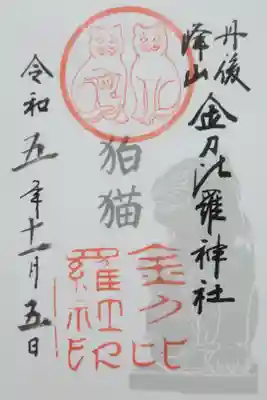 丹後
峰山
金刀比羅神社
狛猫
金刀比
羅社印
令和五年十一月五日